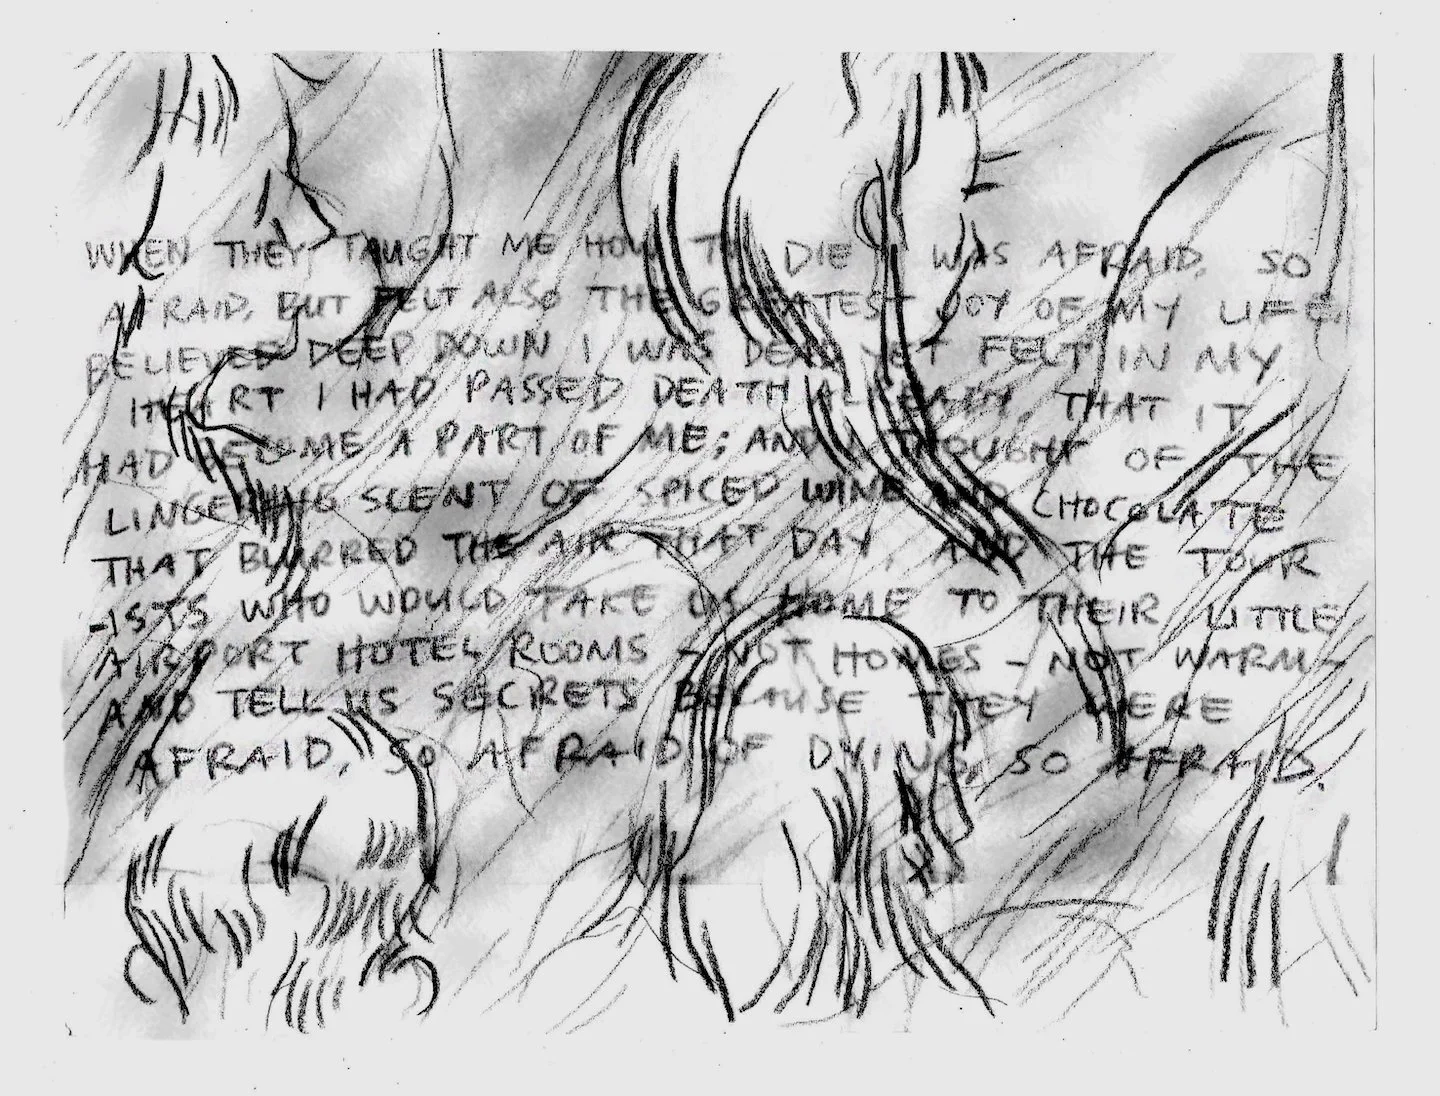 WHEN THEY TAUGHT ME HOW TO DIE I WAS AFRAID, SO
AFRAID, BUT FELT ALSO THE GREATEST JOY OF MY LIFE,
BELIEVED DEEP DOWN I WAS DEAD YET FELT IN MY
HEART I HAD PASSED DEATH ALREADY, THAT IT
HAD BECOME A PART OF ME; AND I THOUGHT OF THE
LINGERING SCENT OF SPICED WINE AND CHOCOLATE
THAT BLURRED THE AIR THAT DAY, AND THE TOUR
-ISTS WHO WOULD TAKE US HOME TO THEIR LITTLE
AIRPORT HOTEL ROOMS - NOT HOMES - NOT WARM -
AND TELL US SECRETS BECAUSE THEY WERE
AFRAID, SO AFRAID OF DYING, SO AFRAID.